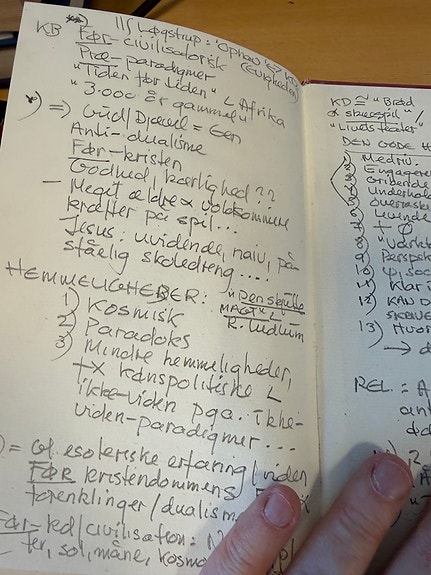 *) // Løgstrup: "Ophav" <-> KD
KB Før-civilisatorisk (Evigheden)
Præ-paradigmer
"Tiden før tiden" < Afrika
"3.000 år gammel"
*) => Gud/Djævel = Een
Anti-dualisme
Før-kristen
Godhed, kærlighed??
- Meget ældre & voldsommere
kræfter på spil...
Jesus: uvidende, naiv, på-
ståelig skoledreng....
HEMMELIGHEDER: "Den skjulte
MAGT" <
R. Ludlum
1) Kosmisk
2) Paradoks
3) Mindre hemmeligheder,
køns politiske <
ikke-viden pga. ikke-
viden-paradigmer...
) = esoteriske erfaring/viden
FØR kristendommens
forenklinger/dualism
Før- civilisation:
sol, måne, kosmo
KD ≅ "Brød
og skuespil"/
"Livets teater"
DEN GODE
Medriv.
Engagere
Gribende
Underhol
Overrask
Levende
7) + Ø
8) "Værkt
9) Perspek
10) φ, soc
11) Klar
12) KAN D
SKRIVE
13) Hvor
REL. = A
ant